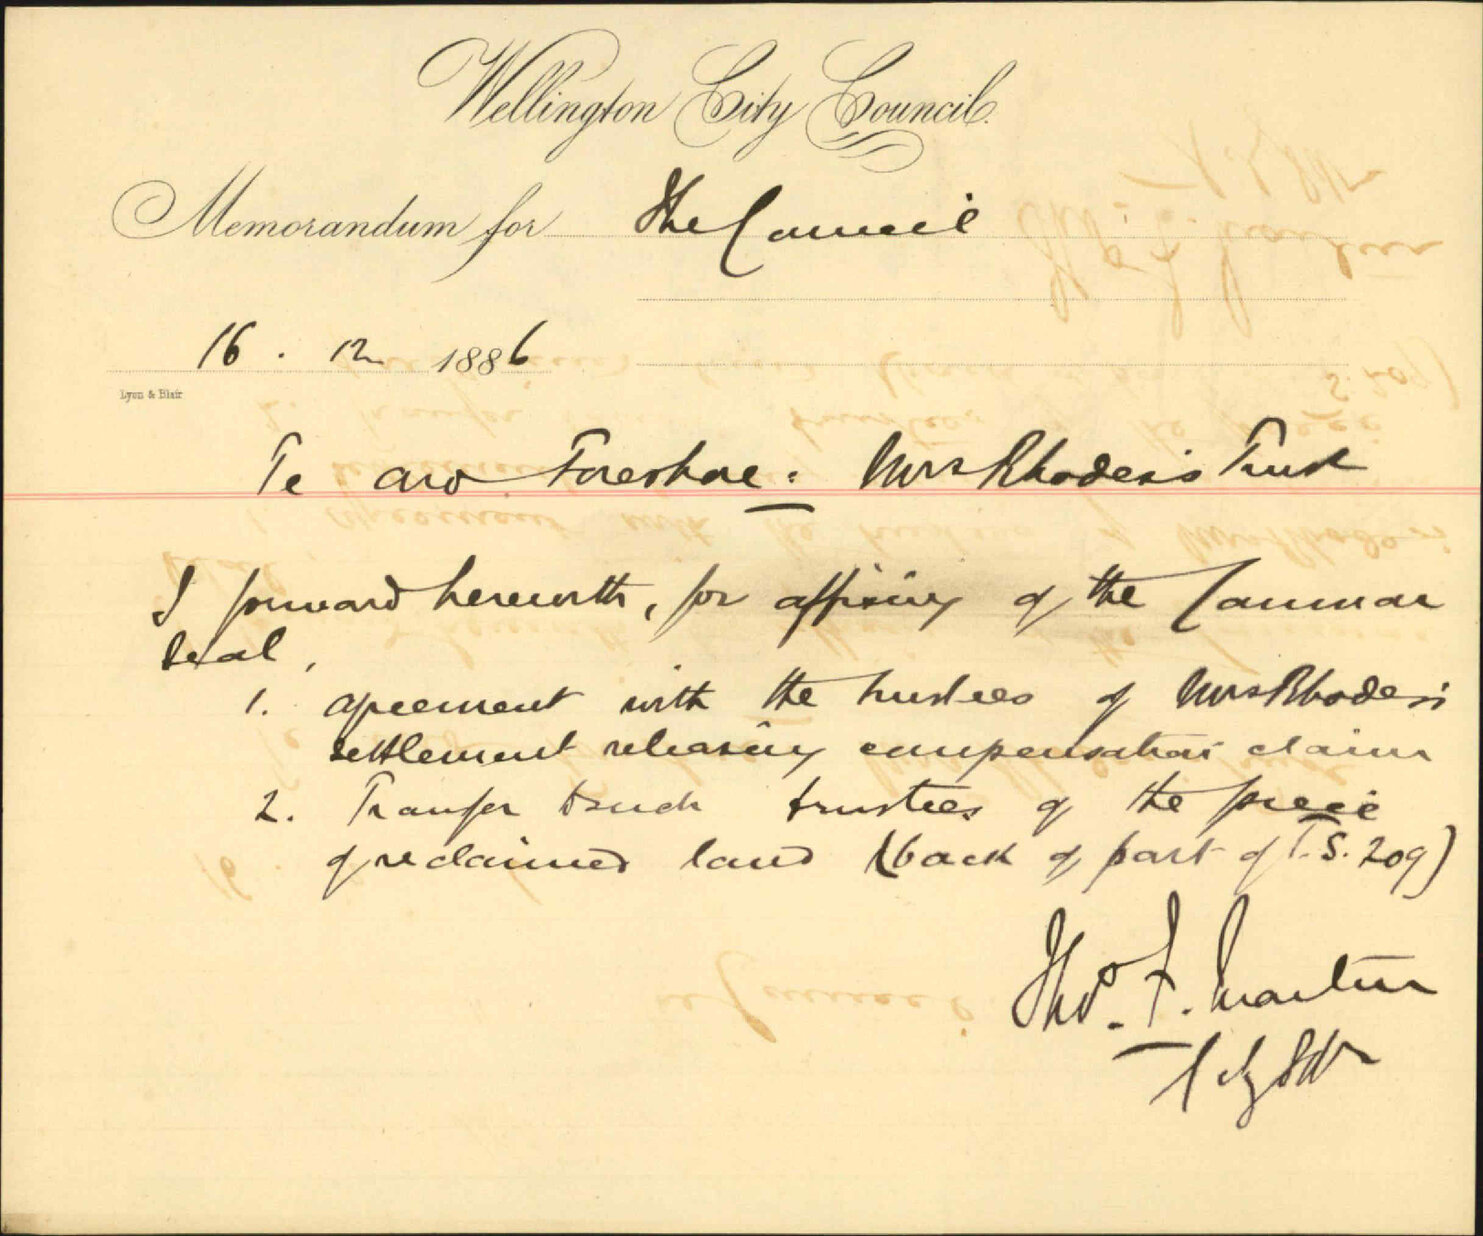 Wellington City Council.
Memorandum for The Council
16 . 12 1886
Lyon & Blair
Te aro Foreshore : Mrs Rhodes's Trust
I forward herewith, for affixing of the Common
Seal,
1. agreement with the trustees of Mrs Rhodes's
settlement releasing compensation claim
2. Transfer to such trustees of the piece
of reclaimed land (back of part of T.S. 209)
Thos. F. Martin
City Solr